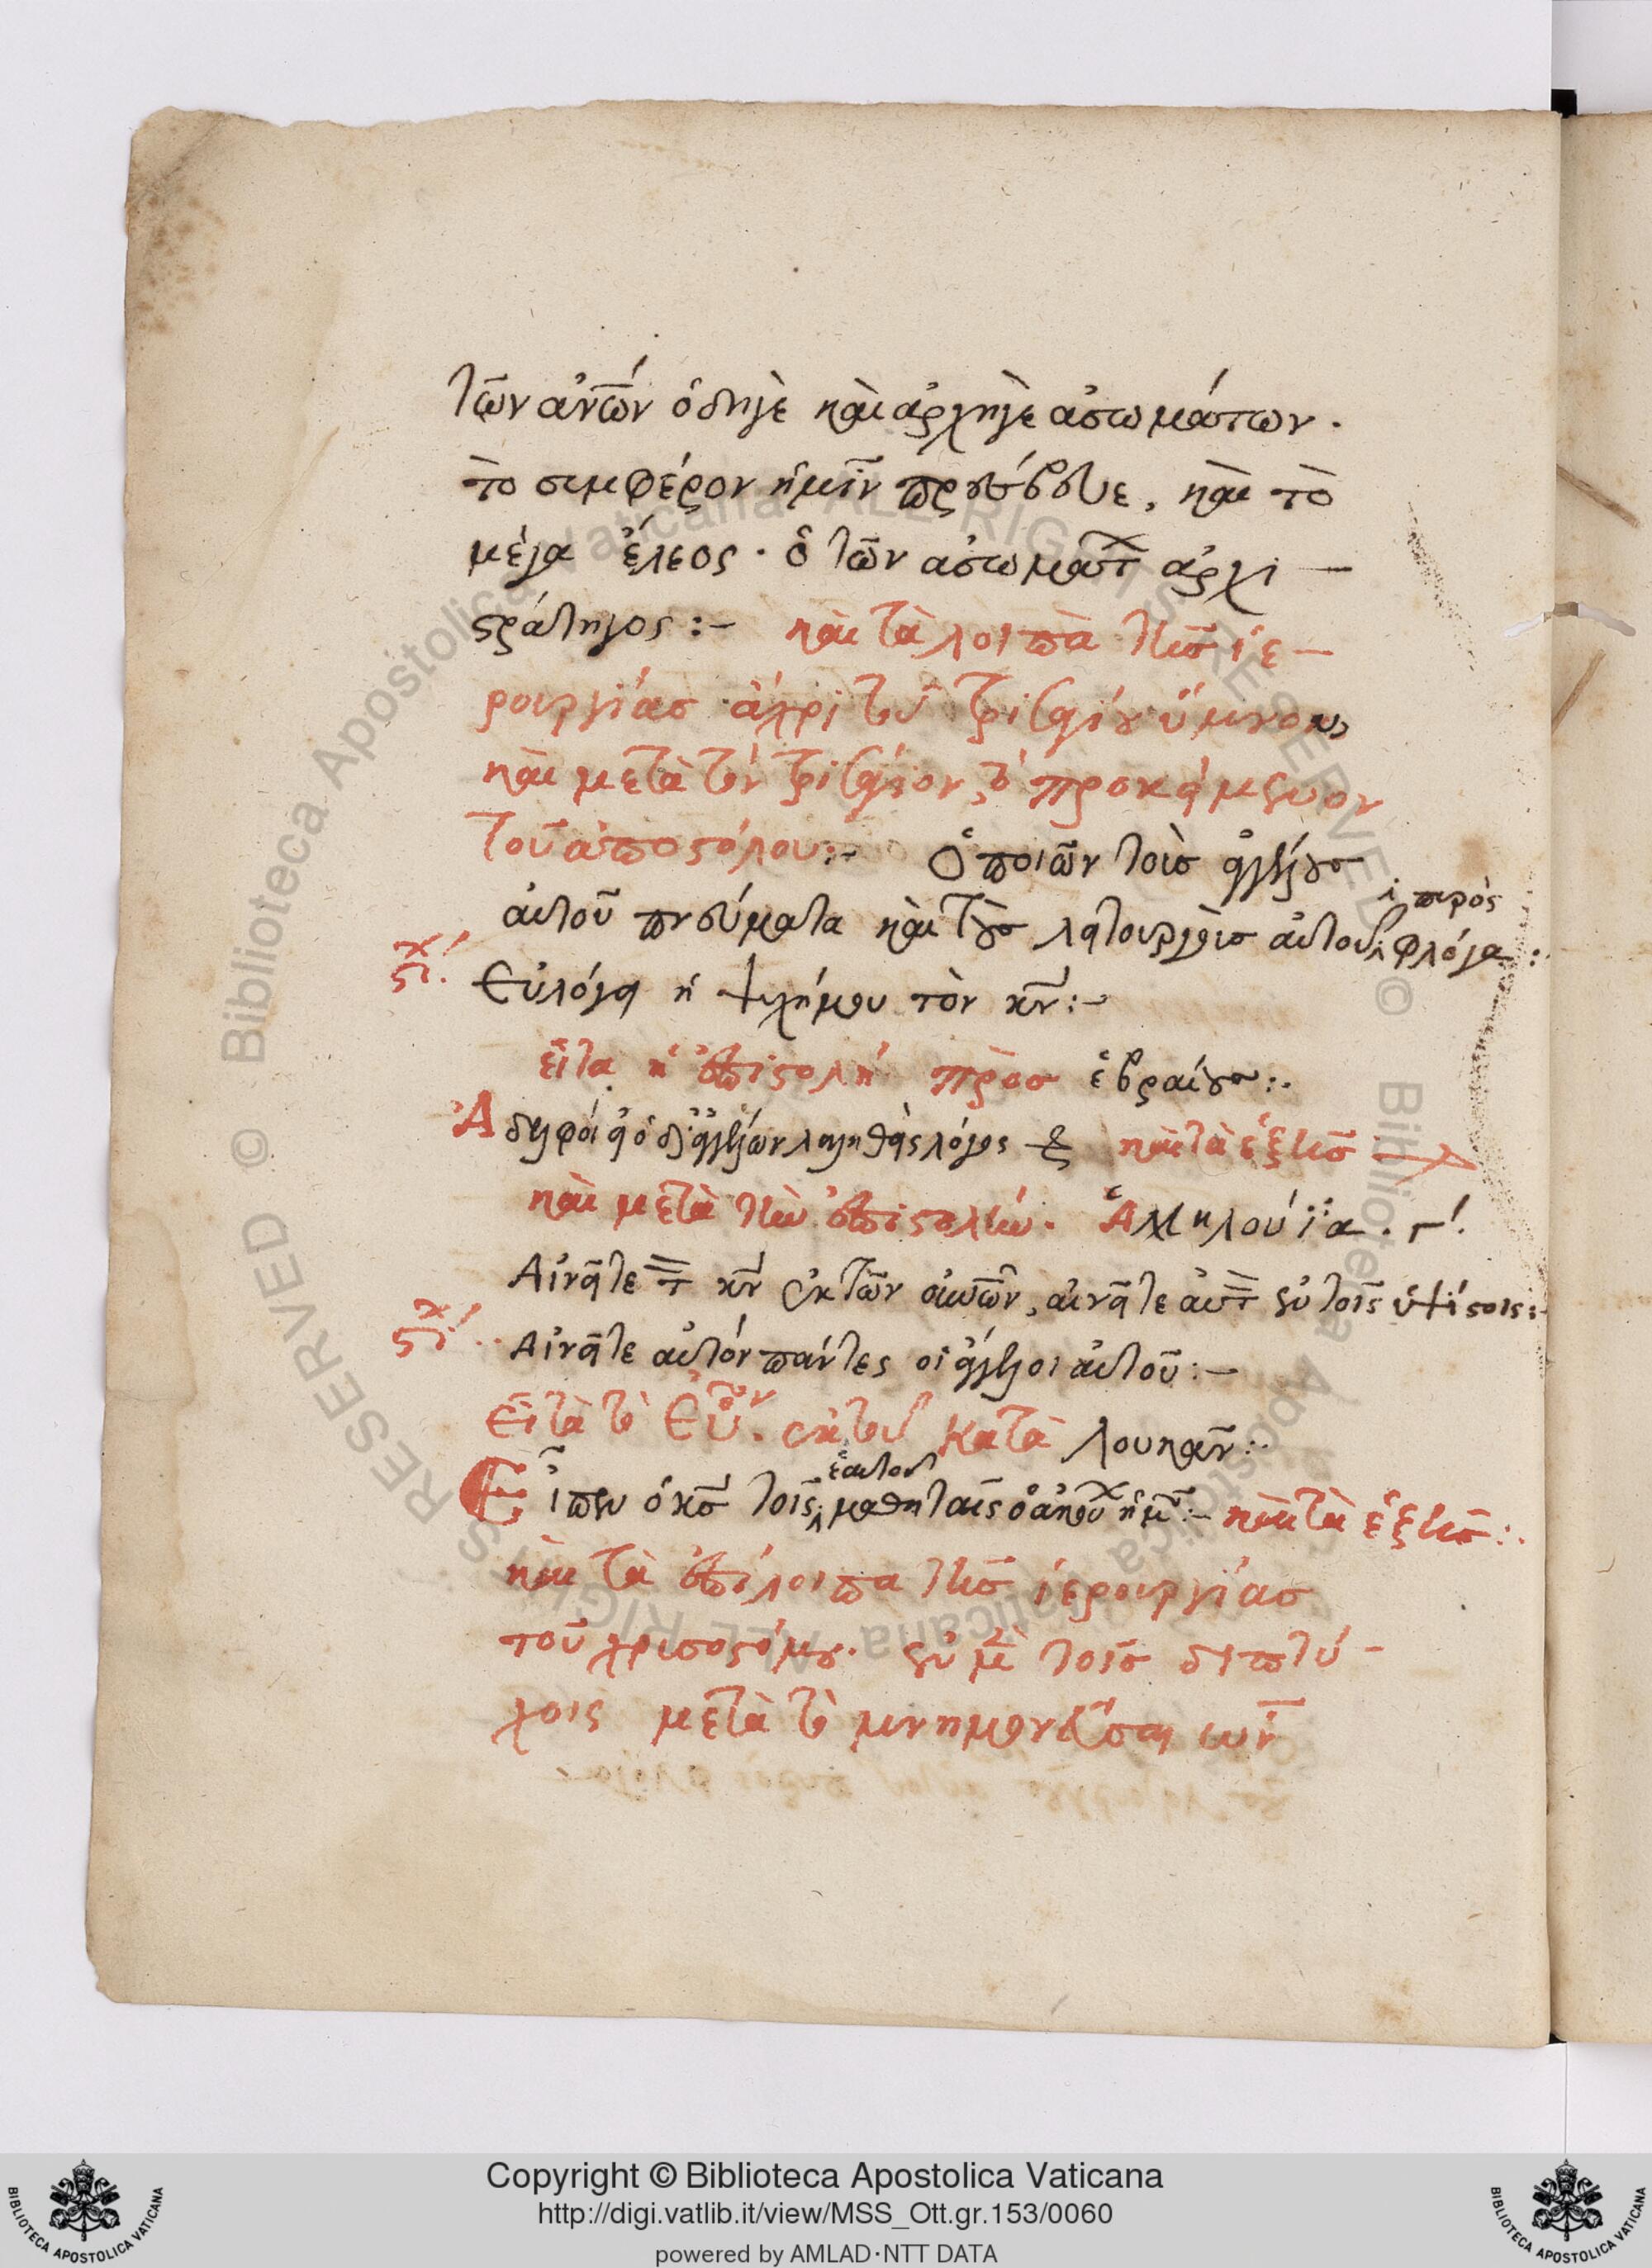 τῶν ἀν̅ῶν ὁδηγὲ καὶ ἀρχηγὲ ἀσωμάτων.
τὸ συμφέρον ἡμῖν πρέσβευε, καὶ τὸ
μέγα ἔλεος· ὁ τῶν ἀσωμάτ αρχι –
στράτηγος :– καὶ τὰ λοιπὰ τῆς ἱε –
ρουργίας ἄχρι τοῦ τρισαγίου ὕμνου,
καὶ μετὰ τὸν τρισάγιον, τὸ προκείμενον
τοῦ ἀποστόλου :– Ὁ ποιῶν τοὺς ἀγγέλους
αὐτοῦ πνεύματα καὶ τοὺς λειτουργοὺς αὐτοῦ πυρὸς φλόγα :
στίχ. Εὐλόγει ἡ ψυχή μου τὸν κν̅ :–
εἶτα ἡ ἐπιστολή πρὸς ἑβραίους :.
Ἀδελφοί εἰ ὁ δι ἀγγέλων λαληθεὶς λόγος καὶ τὰ ἑξῆς
καὶ μετὰ τὴν ἐπιστολήν. Ἀλληλούϊα. γ΄.
Αἰνεῖτε τ κν̅ ἐκ τῶν οὐν̅ῶν, αἰνεῖτε αὐτ ἐν τοῖς ὑψίστοις :
στίχ. Αἰνεῖτε αὐτόν πάντες οἱ ἄγγελοι αὐτοῦ :–
Εἶτα τὸ Εὐ. ἐκ τοῦ Κατὰ Λουκᾶν :.
Εἶπεν ὁ κς̅ τοῖς ἑαυτοῦ μαθηταῖς ὁ ἀκού ὑμ :– καὶ τὰ ἑξῆς :.
καὶ τὰ ἐπίλοιπα τῆς ἱερουργίας
τοῦ χρυσοστόμου. ἐν μὲ τοῖς διπτύ –
χοις μετὰ τὸ μνημονεῦσαι
Copyright © Biblioteca Apostolica Vaticana
http://digi.vatlib.it/view/MSS_Ott.gr.153/0060
powered by AMLAD·NTT DATA
BIBLIOTECA APOSTOLICA VATICANA
BIBLIOTECA APOSTOLICA VATICANA
© Biblioteca Apostolica Vaticana ALL RIGHTS RESERVED © Biblioteca Apostolica Vaticana ALL RIGHTS RESERVED